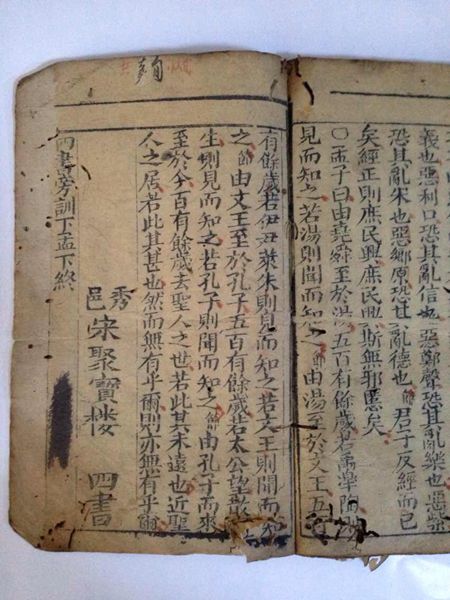 義也惡利口恐其亂信也惡鄭聲恐其亂樂也惡紫
恐其亂朱也惡鄉原恐其亂德也節君子反經而已
矣經正則庶民興庶民興斯無邪慝矣
〇孟子曰由堯舜至於湯五百有餘歲若禹臯陶
見而知之若湯則聞而知之節由湯至於文王五
有餘歲若伊尹萊朱則見而知之若文王則聞而知
之節由文王至於孔子五百有餘歲若太公望散
生則見而知之若孔子則聞而知之節由孔子而來
至於今百有餘歲去聖人之世若此其未遠也近聖
人之居若此其甚也然而無有乎爾則亦無有乎爾
秀邑宋聚寶樓 四書
四書旁訓下孟下終